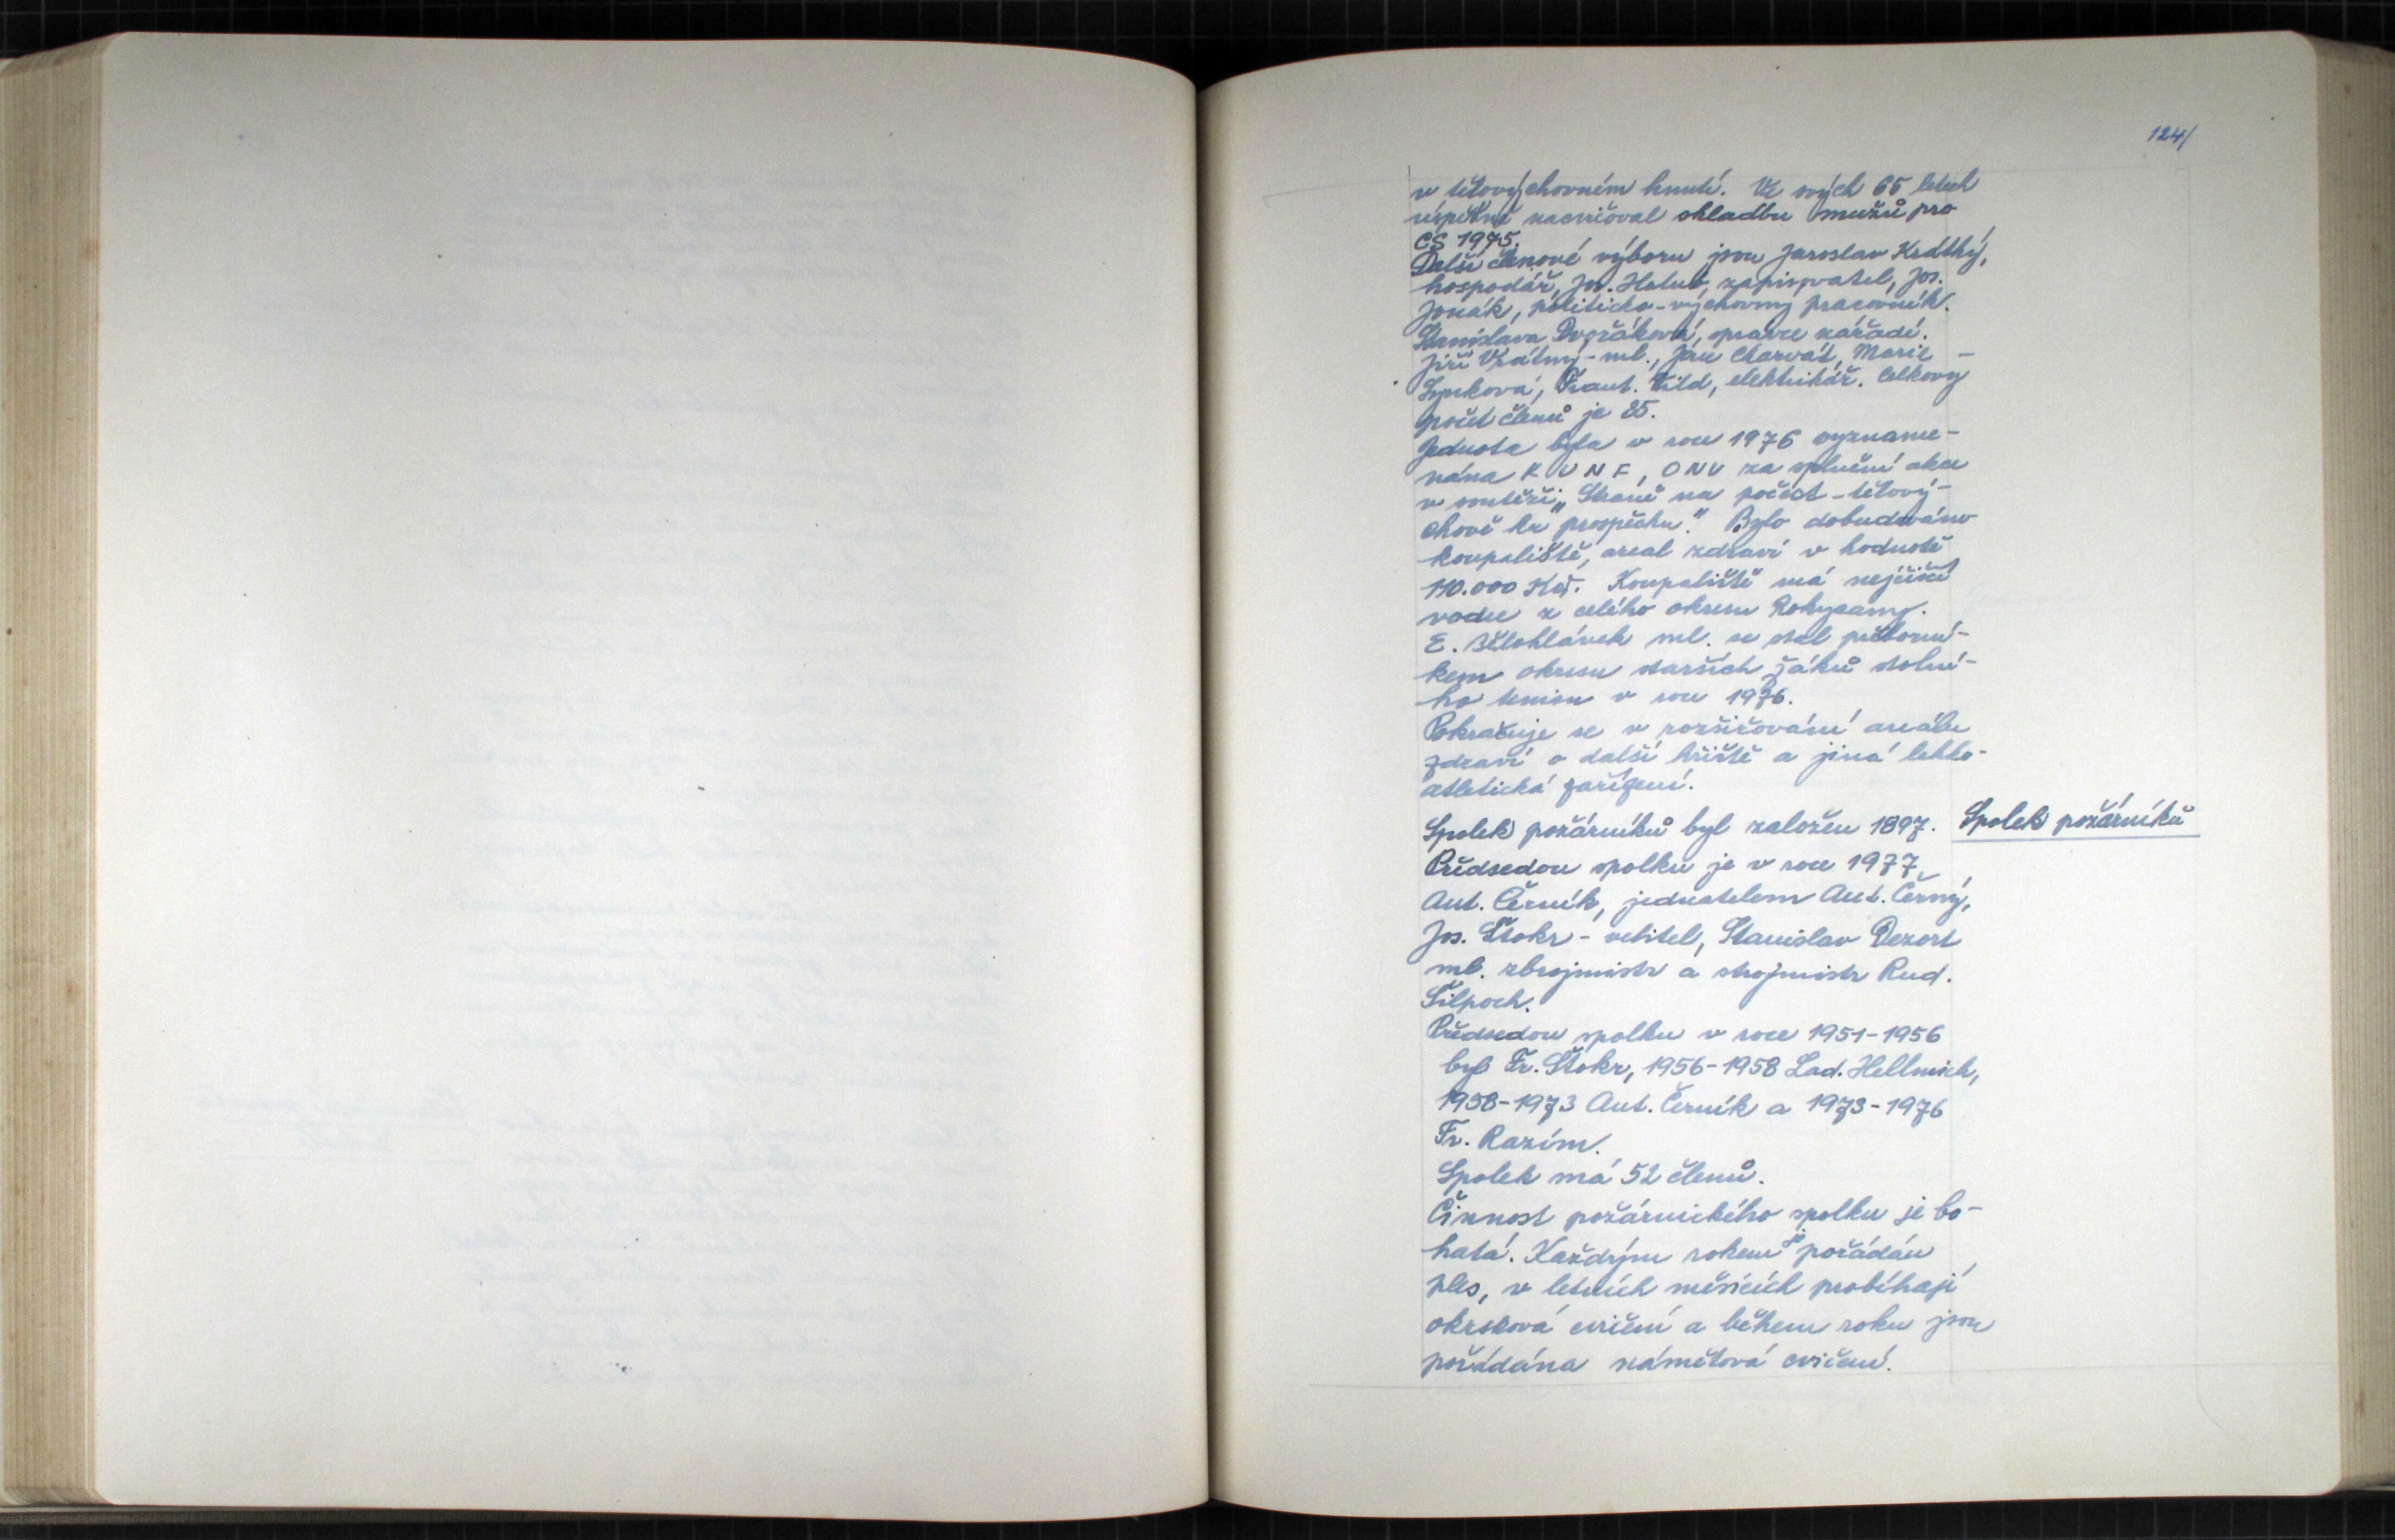 124/
v tělovýchovném hnutí. Ve svých 65 letech
úspěšně nacvičoval skladbu mužů pro
ČS 1975.
Další členové výboru jsou Jaroslav Krátký,
hospodář, Jos. Holub, zapisovatel, Jos.
Jonák, politicko-výchovný pracovník.
Stanislava Dvořáková, správce nářadí.
Jiří Vrátný-ml., Jan Charvát, Marie
Frant. Vild, elektrikář. Celkový
počet členů je 85.
Jednota byla v roce 1976 vyzname-
nána K V N F, ONV za splnění akce
v soutěži „Straně na počest - tělový-
chově ku prospěchu." Bylo dobudováno
koupaliště, areal zdraví v hodnotě
110.000 Kčs. Koupaliště má nejčistší
vodu z celého okresu Rokycany.
E. Bělohlávek ml. se stal přeborní-
kem okresu starších žáků stolní-
ho tenisu v roce 1976.
Pokračuje se v rozšiřování areálu
zdraví o další hřiště a jiná lehko-
atletická zařízení.
Spolek požárníků byl založen 1897. Spolek požárníků
Předsedou spolku je v roce 1977
Ant. Černík, jednatelem Ant. Černý,
Jos. Štokr - velitel, Stanislav Dezort
ml. zbrojmistr a strojmistr Rud.
Šilpoch.
Předsedou spolku v roce 1951-1956
byl Fr. Štokr, 1956-1958 Lad. Hellmich,
1958-1973 Ant. Černík a 1973-1976
Fr. Razím.
Spolek má 52 členů.
Činnost požárnického spolku je bo-
hatá. Každým rokem je pořádán
ples, v letních měsících probíhají
okrsková cvičení a během roku jsou
pořádána námětová cvičení.